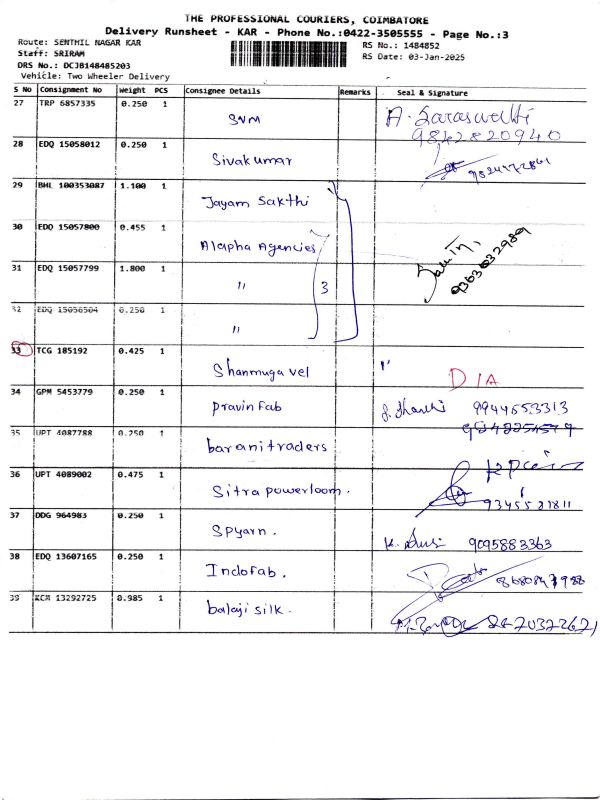 THE PROFESSIONAL COURIERS, COIMBATORE
Delivery Runsheet - KAR - Phone No.:0422-3505555 - Page No.:3
Route: SENTHIL NAGAR KAR
RS No.: 1484852
Staff: SRIRAM
RS Date: 03-Jan-2025
DRS No.: DCJB148485203
Vehicle: Two Wheeler Delivery
S No Consignment No Weight PCS Consignee Details Remarks Seal & Signature
27 TRP 6857335 0.250 1 SVM A. Saraswathi
9842820940
28 EDQ 15058012 0.250 1 Sivakumar
29 BHL 100353087 1.100 1 Jayam Sakthi
30 EDQ 15057800 0.455 1 Alapha Agencies
9363032989
31 EDQ 15057799 1.800 1 " 3
32 EDQ 15056504 0.250 1 "
33 TCG 185192 0.425 1 Shanmugavel D/A
34 GPM 5453779 0.250 1 Pravin Fab 9944553313
35 UPT 4087788 0.250 1 barani traders
36 UPT 4089002 0.475 1 Sitra powerloom.
37 DDG 964983 0.250 1 Spyarn. 9095883363
38 EDQ 13607165 0.250 1 Indofab.
39 KCM 13292725 0.985 1 balaji silk.